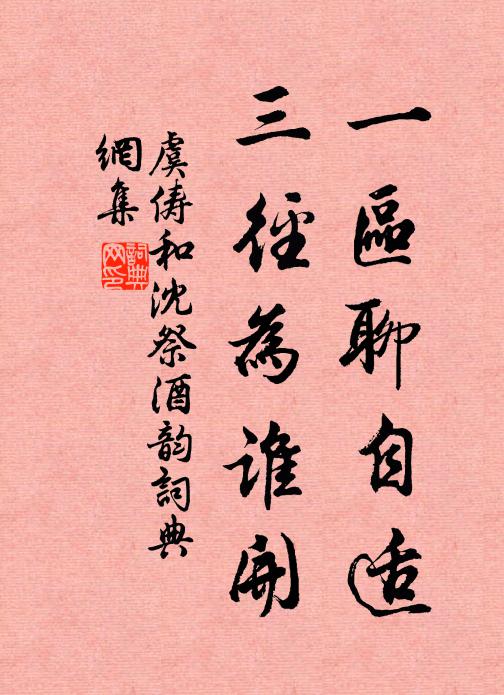 一區聊自适
三徑為誰開
虞儔和沈祭酒韵詞典
網集
詞典
网印